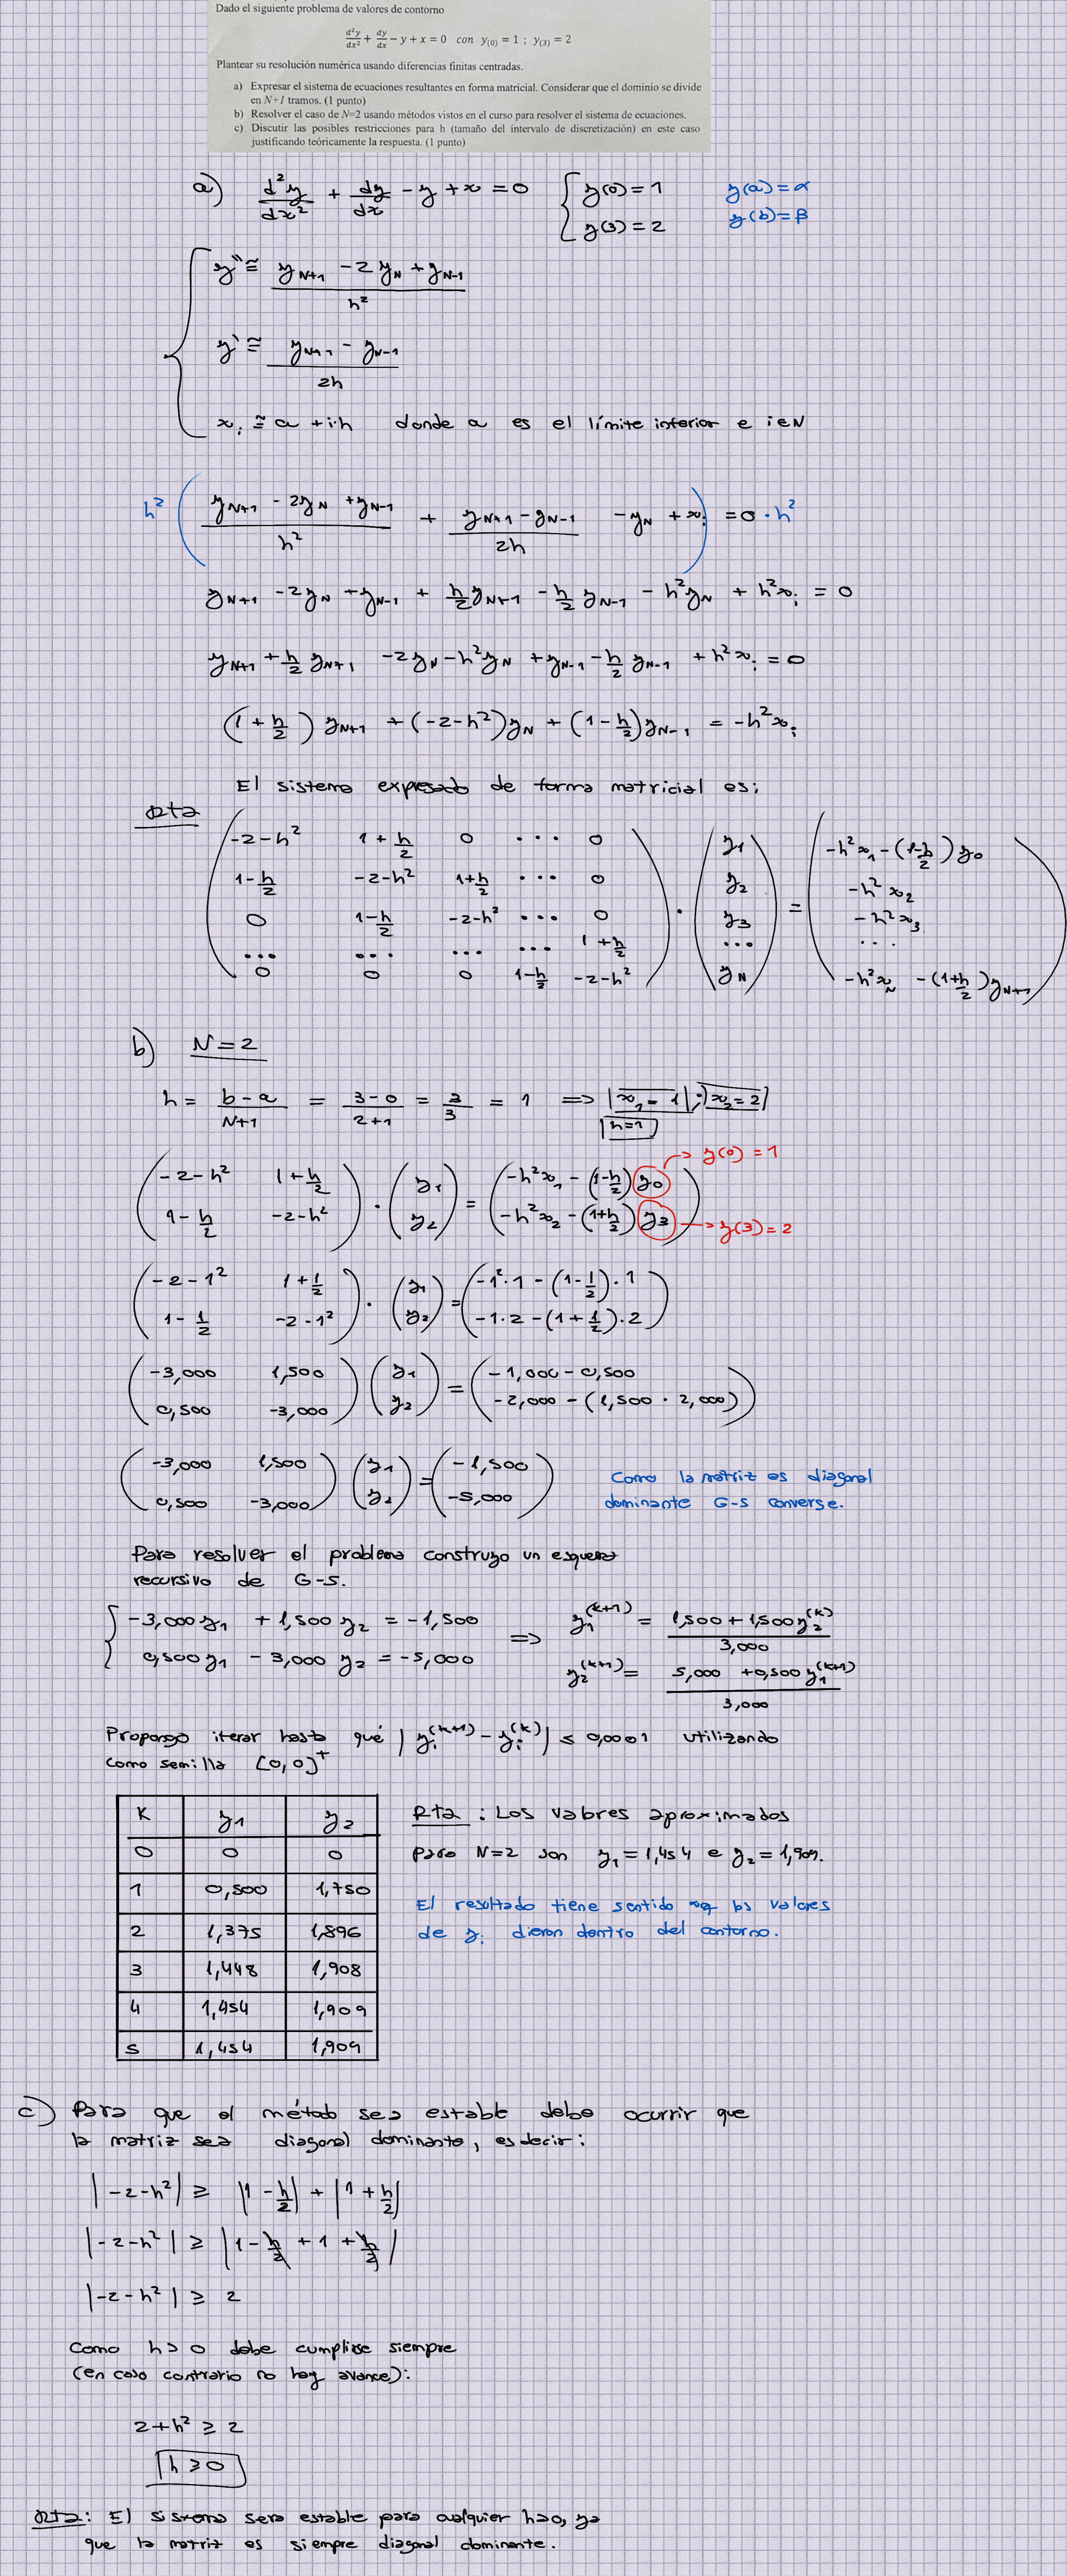 Dado el siguiente problema de valores de contorno
d²y/dx² + dy/dx − y + x = 0 con y(0) = 1 ; y(3) = 2
Plantear su resolución numérica usando diferencias finitas centradas.
a) Expresar el sistema de ecuaciones resultantes en forma matricial. Considerar que el dominio se divide
en N+1 tramos. (1 punto)
b) Resolver el caso de N=2 usando métodos vistos en el curso para resolver el sistema de ecuaciones.
c) Discutir las posibles restricciones para h (tamaño del intervalo de discretización) en este caso
justificando teóricamente la respuesta. (1 punto)
a) d²y/dx² + dy/dx − y + x = 0 { y(0) = 1 y(a) = α
y(3) = 2 y(b) = β
y'' ≅ (y_{N+1} − 2y_N + y_{N−1}) / h²
y' ≅ (y_{N+1} − y_{N−1}) / 2h
x_i ≅ a + i·h donde a es el límite inferior e i∈N
h² ( (y_{N+1} − 2y_N + y_{N−1}) / h² + (y_{N+1} − y_{N−1}) / 2h − y_N + x_i ) = 0 · h²
y_{N+1} − 2y_N + y_{N−1} + h/2 y_{N+1} − h/2 y_{N−1} − h² y_N + h² x_i = 0
y_{N+1} + h/2 y_{N+1} − 2y_N − h² y_N + y_{N−1} − h/2 y_{N−1} + h² x_i = 0
(1 + h/2) y_{N+1} + (−2−h²) y_N + (1 − h/2) y_{N−1} = −h² x_i
El sistema expresado de forma matricial es:
Rta
−2−h² 1+h/2 0 ... 0 y₁ −h²x₁ − (1−h/2) y₀
1−h/2 −2−h² 1+h/2 ... 0 y₂ −h²x₂
0 1−h/2 −2−h² ... 0 · y₃ = −h²x₃
... ... ... ... 1+h/2 ... ...
0 0 0 1−h/2 −2−h² y_N −h²x_N − (1+h/2) y_{N+1}
b) N = 2
h = (b−a)/(N+1) = (3−0)/(2+1) = 3/3 = 1 ⟹ x₁ = 1 ; x₂ = 2
h=1
→ y(0) = 1
(−2−h² 1+h/2) · (y₁) = (−h²x₁ − (1−h/2) y₀)
(1−h/2 −2−h²) (y₂) (−h²x₂ − (1+h/2) y₃) → y(3) = 2
(−2−1² 1+1/2) · (y₁) = (−1²·1 − (1−1/2)·1)
(1−1/2 −2−1²) (y₂) (−1·2 − (1+1/2)·2)
(−3,000 1,500) (y₁) = (−1,000 − 0,500)
(0,500 −3,000) (y₂) (−2,000 − (1,500 · 2,000))
(−3,000 1,500) (y₁) = (−1,500) Como la matriz es diagonal
(0,500 −3,000) (y₂) (−5,000) dominante G-S converge.
Para resolver el problema construyo un esquema
recursivo de G-S.
{ −3,000 y₁ + 1,500 y₂ = −1,500 ⟹ y₁^(k+1) = (1,500 + 1,500 y₂^(k)) / 3,000
0,500 y₁ − 3,000 y₂ = −5,000 y₂^(k+1) = (5,000 + 0,500 y₁^(k+1)) / 3,000
Propongo iterar hasta qué |y_i^(k+1) − y_i^(k)| ≤ 0,0001 utilizando
como semilla [0,0]^T
K y₁ y₂
0 0 0
1 0,500 1,750
2 1,375 1,896
3 1,448 1,908
4 1,454 1,909
5 1,454 1,909
Rta : Los valores aproximados
para N=2 son y₁ = 1,454 e y₂ = 1,909.
El resultado tiene sentido los valores
de y_i dieron dentro del contorno.
c) Para que el método sea estable debe ocurrir que
la matriz sea diagonal dominante, es decir:
|−2−h²| ≥ |1 − h/2| + |1 + h/2|
|−2−h²| ≥ |1 − h/2 + 1 + h/2|
|−2−h²| ≥ 2
Como h>0 debe cumplirse siempre
(en caso contrario no hay avance):
2+h² ≥ 2
h ≥ 0
Rta: El sistema sera estable para cualquier h>0, ya
que la matriz es siempre diagonal dominante.